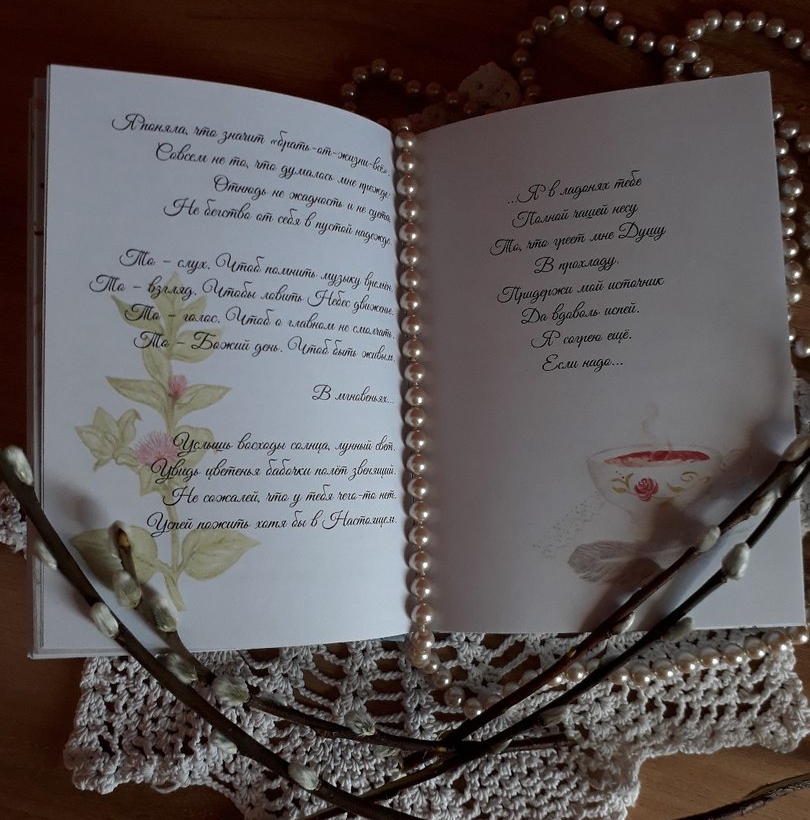 Я поняла, что значит «брать-от-жизни-всё».
Совсем не то, что думалось мне прежде.
Отнюдь не жадность и не суета,
Не бегство от себя в пустой надежде.
То – слух. Чтоб помнить музыку времён.
То – взгляд. Чтобы ловить Небес движенье.
То – голос. Чтоб о главном не смолчать.
То – Божий день. Чтоб быть живым.
В мгновеньях...
Услышь восходы солнца, лунный свет.
Увидь цветенья бабочки полёт звенящий.
Не сожалей, что у тебя чего-то нет.
Успей пожить хотя бы в Настоящем.
...Я в ладонях тебе
Полной чашей несу
То, что греет мне Душу
В прохладу.
Придержи мой источник
Да вдоволь испей.
Я согрею ещё.
Если надо...